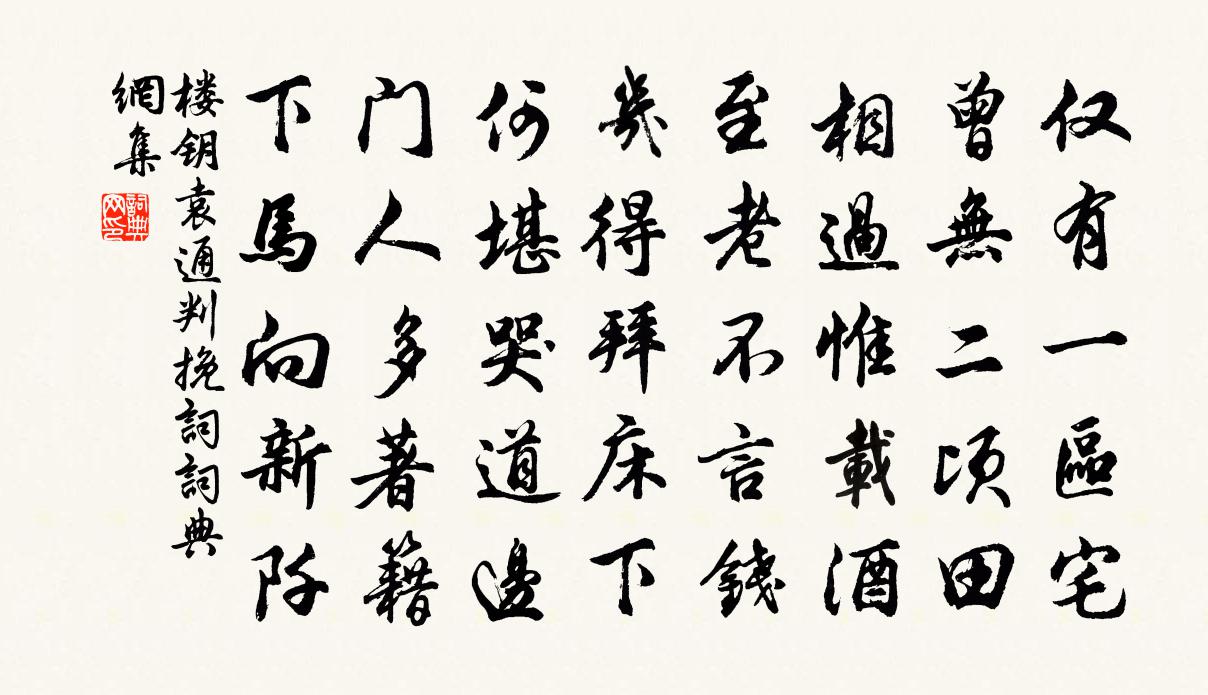 仅有一區宅
曾無二顷田
相過惟載酒
至老不言錢
幾得拜床下
何堪哭道邊
门人多著籍
下馬向新阡
楼钥袁通判挽詞詞典
網集
詞典
网印